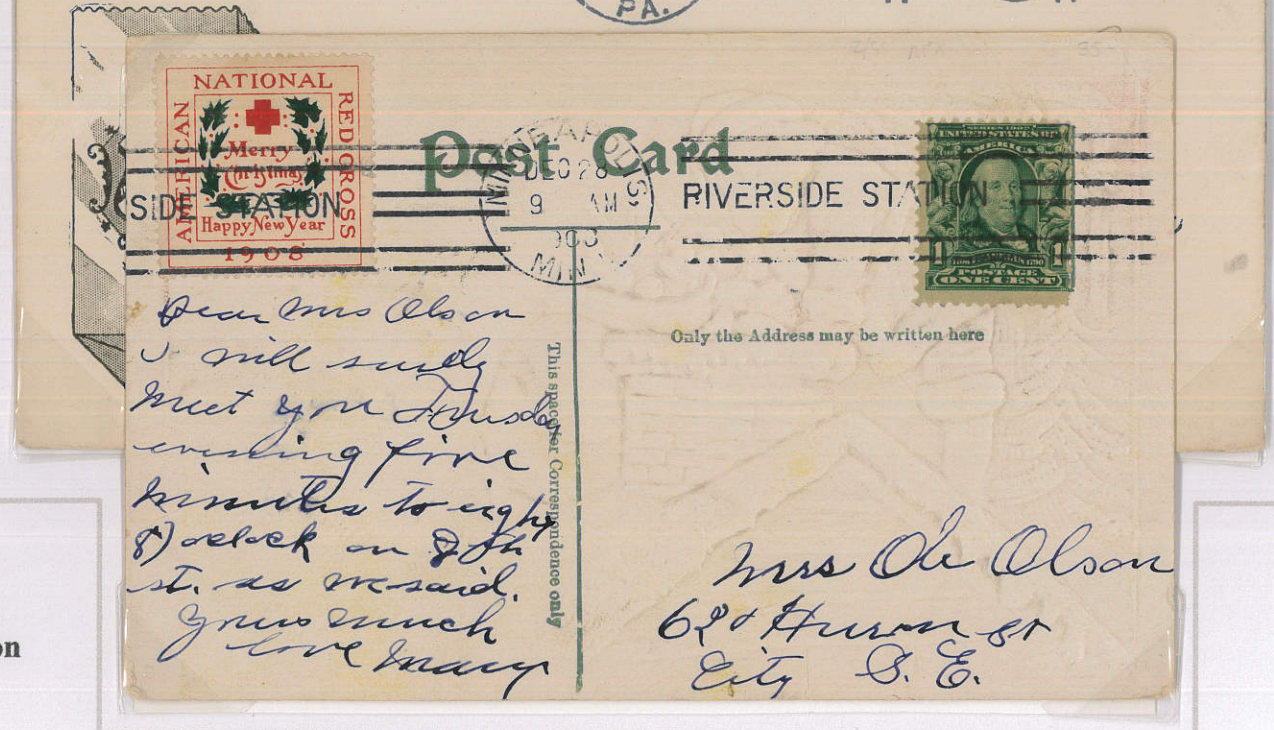 PA.
AMERICAN
NATIONAL
RED CROSS
Merry
Christmas
Happy New Year
1908
SIDE STATION
Post Card
MINNEAPOLIS
DEC 28
9 AM
1908
MINN.
RIVERSIDE STATION
SERIES 1902
UNITED STATES OF
AMERICA
1 1
POSTAGE
ONE CENT
Only the Address may be written here
This space for Correspondence only
Dear Mrs Olson
I will surely
meet you
evening five
minutes to eight
8) oclock on 20th
st. as we said.
Yours much
love Mary
Mrs Ole Olson
62 Huron st
City S. E.
on